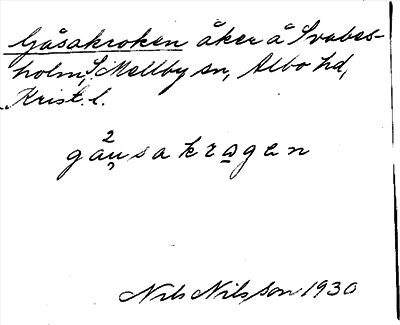 Gåsakroken åker å Svabes-
holm, S. Mellby sn, Albo hd,
Krist. l.
gåu̯²sakragen
Nils Nilsson 1930